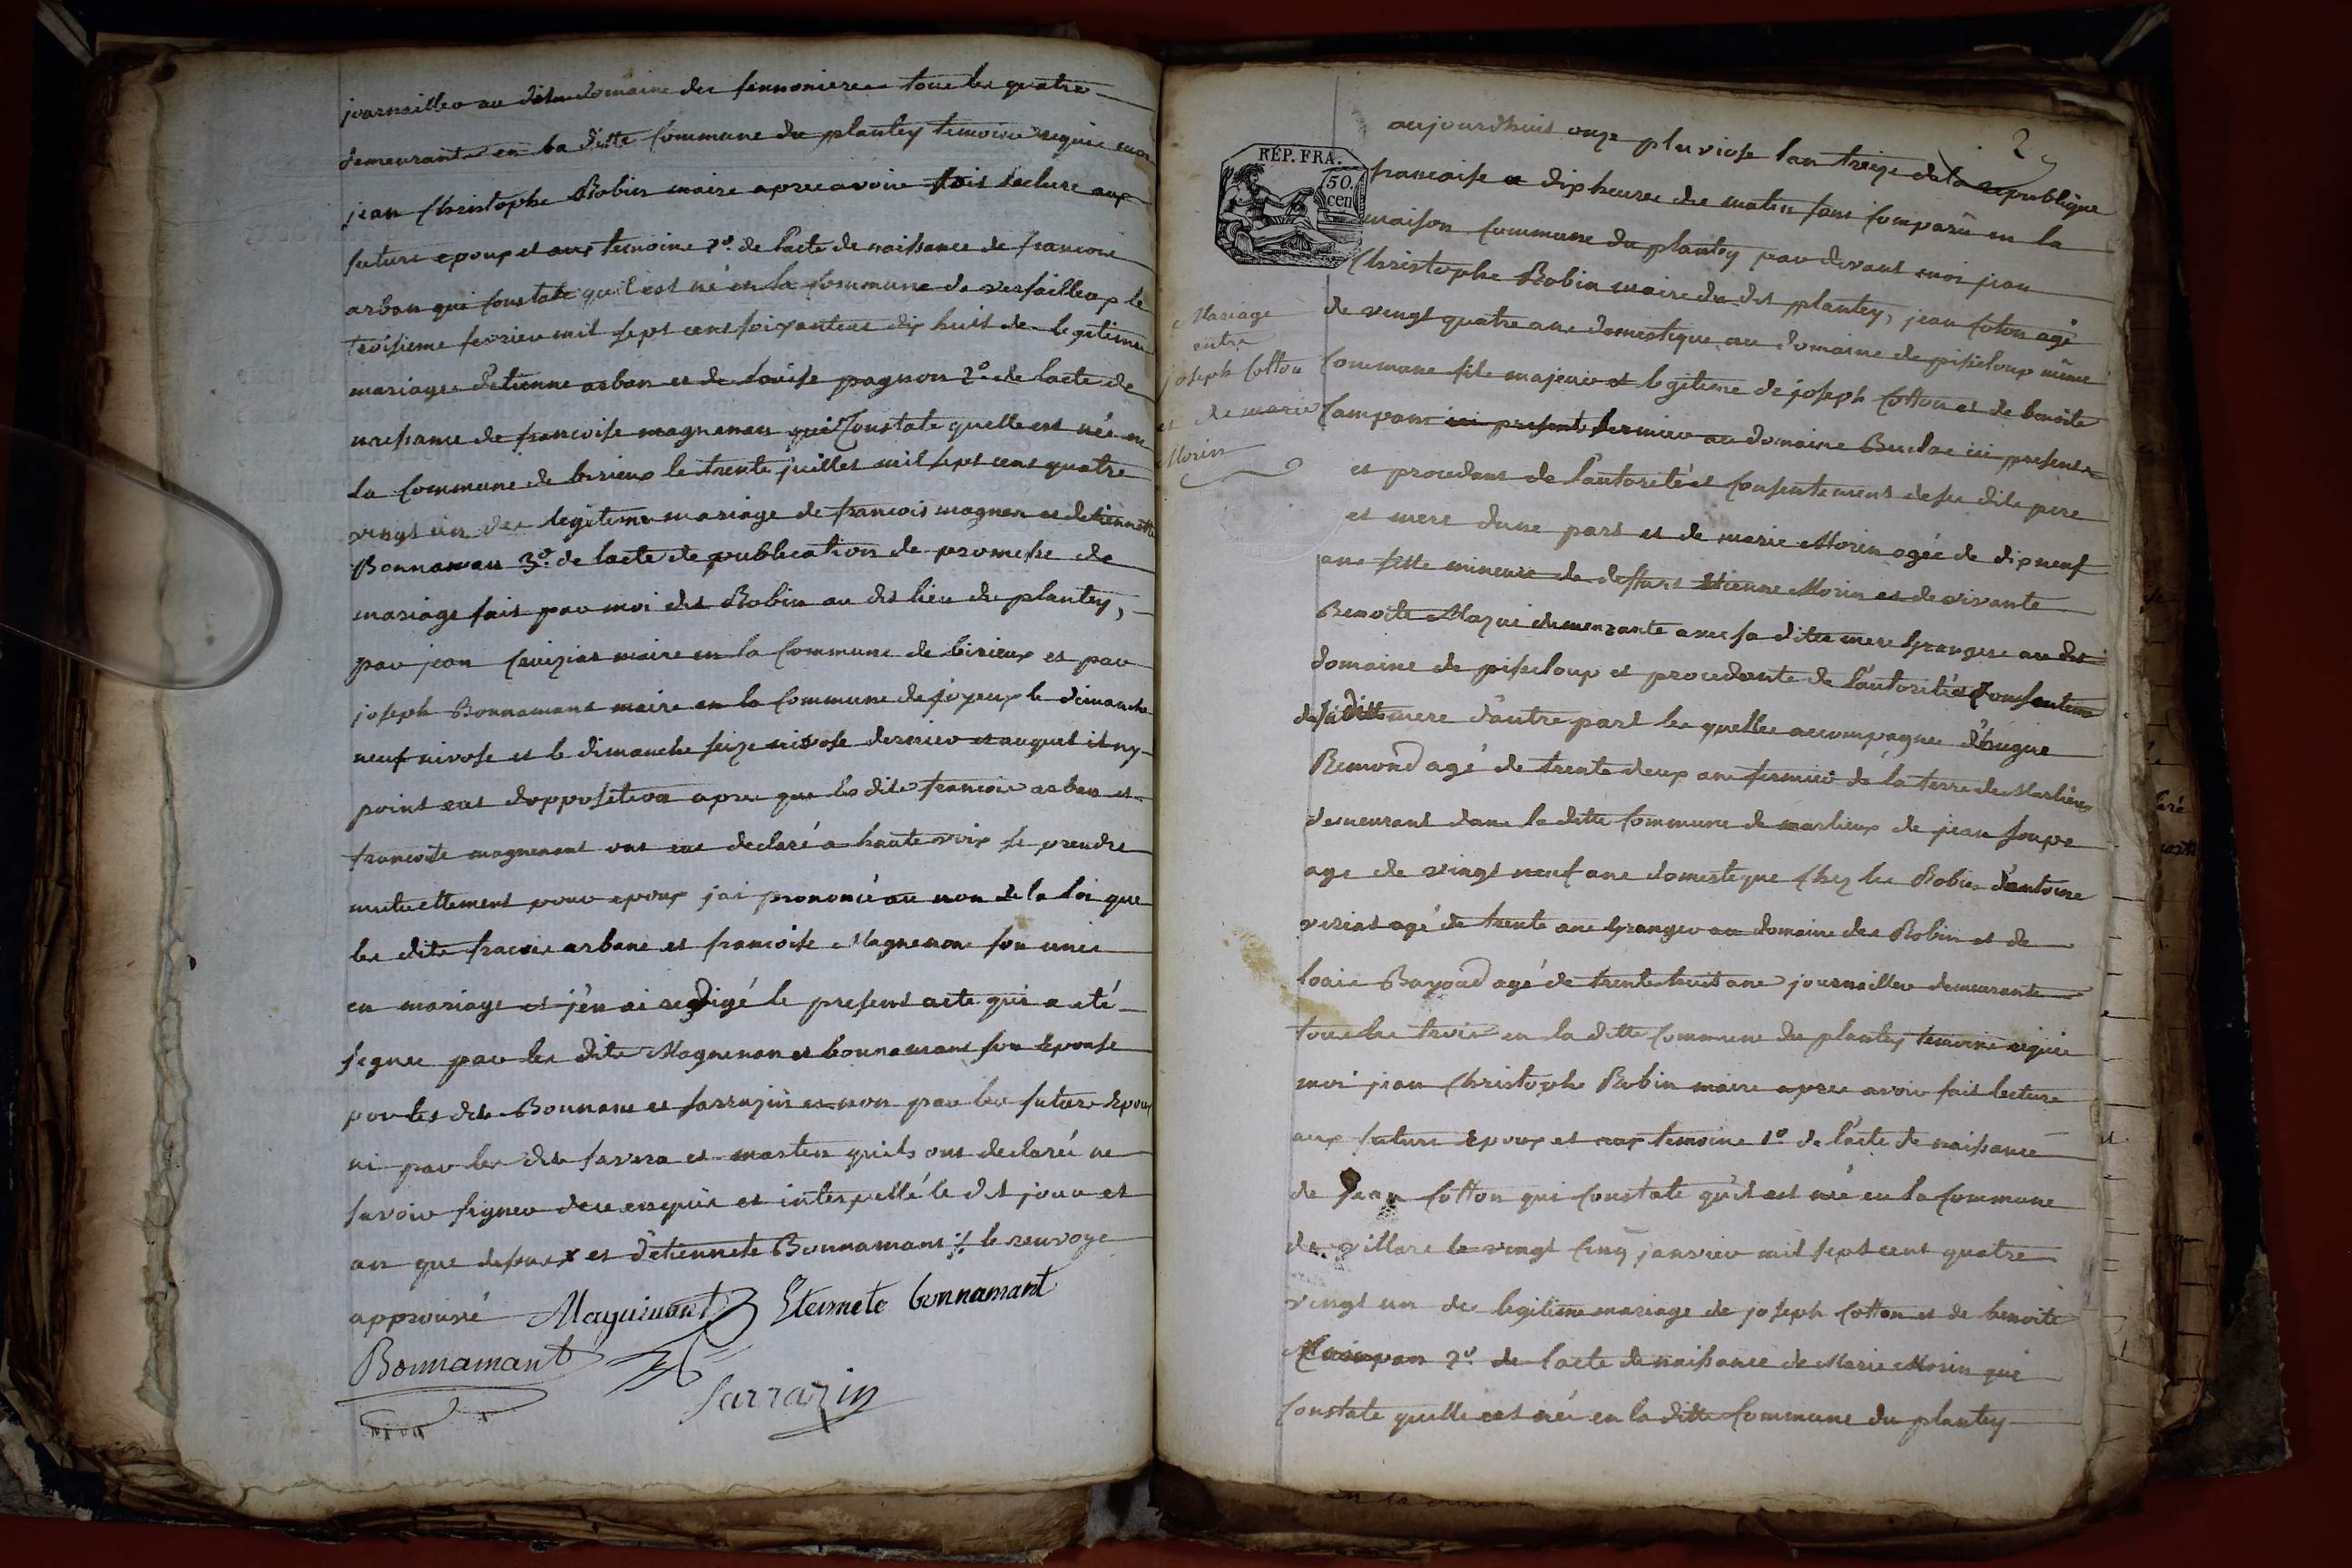 journaillier au dit domaine des sennonieres tous les quatre
demeurants en la ditte Commune du plantey temoins requis moi
jean Christophe Robin maire apres avoir fait lecture aux
futurs epoux et aux temoins 1º. de lacte de naissance de francois
arban qui constate qu'il est né en la commune de versailleux le
troisieme fevrier mil sept cent soixante et dix huit de legitime
mariage d'etienne arban et de louise pagnon 2º de lacte de
naissance de francoise magnenan qui Constate quelle est née en
la Commune de birieux le trente juillet mil sept cent quatre
vingt un du legitime mariage de francois magnan et detiennette
Bonnaman 3º. de lacte de publication de promesse de
mariage fait par moi dit Robin au dit lieu du plantey,
par jean Cruizias maire en la Commune de birieux et par
joseph Bonnamant maire en la Commune de joyeux le dimanche
neuf nivose et le dimanche seize nivose dernier et auquel il ny
point eut dopposition apres que les dits francois arban et
francoise magnenant ont eut declaré a haute voix se prendre
mutuellement pour epoux jai prononcé au nom de la loi que
les dits fracois arbane et francoise Magnenan son unis
en mariage et j'en ai redigé le present acte qui a eté
signer par les dits Magnenan et bonnamant son Epouse
par les dits Bonnamt et sarrazin et non par les futurs Epoux
ni par les dits et martin quils ont declaré ne
savoir signer de ce enquis et interpellé le dit jour et
an que dessus x et d'etiennete Bonnamant ·/. le renvoye
approuvé Magninant Etiennete bonnamant
Bonnamant
Sarrazin
2
REP. FRA.
50.
cen
aujourdhuit onze pluviose lan treize de la republique
francaise a dix heures du matin sont comparu en la
maison Commune du plantey par devant moi jean
Christophe Robin maire du dit plantey, jean coton agé
de vingt quatre ans domestique au domaine de pisseloup même
Commune fils majeur et legitime de joseph Cotton et de benoite
Campans ici present fermier au domaine ici presents
et procedant de l'autorité et Consentement de ses dits pere
et mere dune part et de marie Morin agée de dix neuf
ans fille mineure de deffunt Etienne Morin et de vivante
Benoite Mazui demeurante avec sa ditte mere Grangere au dit
domaine de pisseloup et procedante de l'autorité et Consenteme
de sa ditte mere d'autre part les quelles accompagnes d'hugue
Remond agé de trente deux ans fermier de la terre de Marlieux
demeurant dans la ditte Commune de marlieux de jean soupe
age de vingt neuf ans domestique chez les Robin d'antoine
agé de trente ans Granger au domaine des Robin et de
louis Bayoud agé de trente huit ans journaillier demeurants
tous les trois en la ditte Commune du plantey temoins requis
moi jean Christophe Robin maire apres avoir fait lecture
aux futurs Epoux et aux temoins 1º de l'acte de naissance
de jean Cotton qui Constate qu'il est né en la Commune
de villars le vingt Cinq janvier mil sept cent quatre
vingt un du legitime mariage de joseph Cotton et de benoite
Campan 2º. de lacte de naissance de Marie Morin qui
Constate quelle est née en la ditte Commune du plantey
Mariage
entre
joseph Cotton
et de marie
Morin